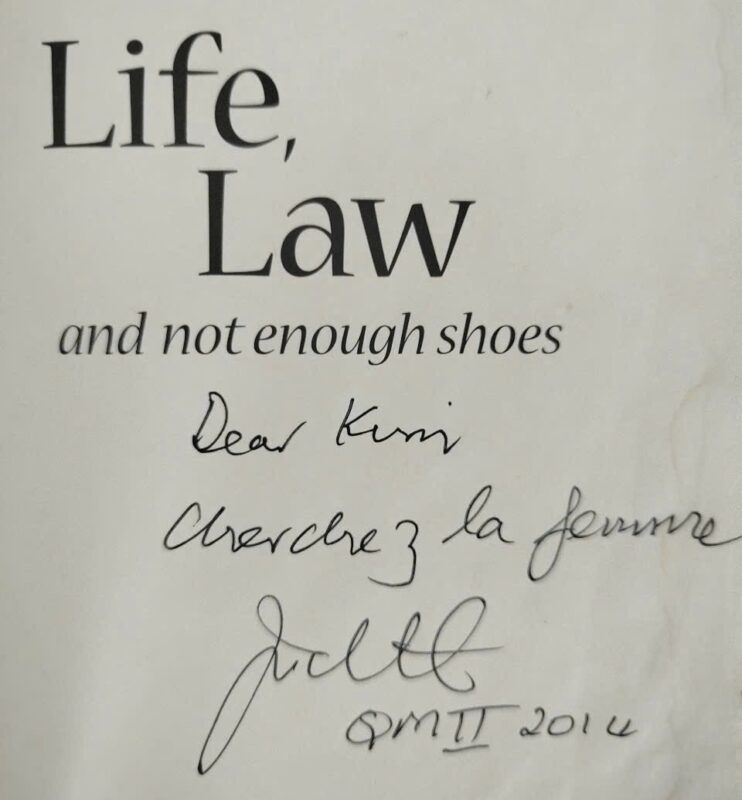 Life,
Law
and not enough shoes
Dear Kim
Cherchez la femme
Judith
QM II 2014